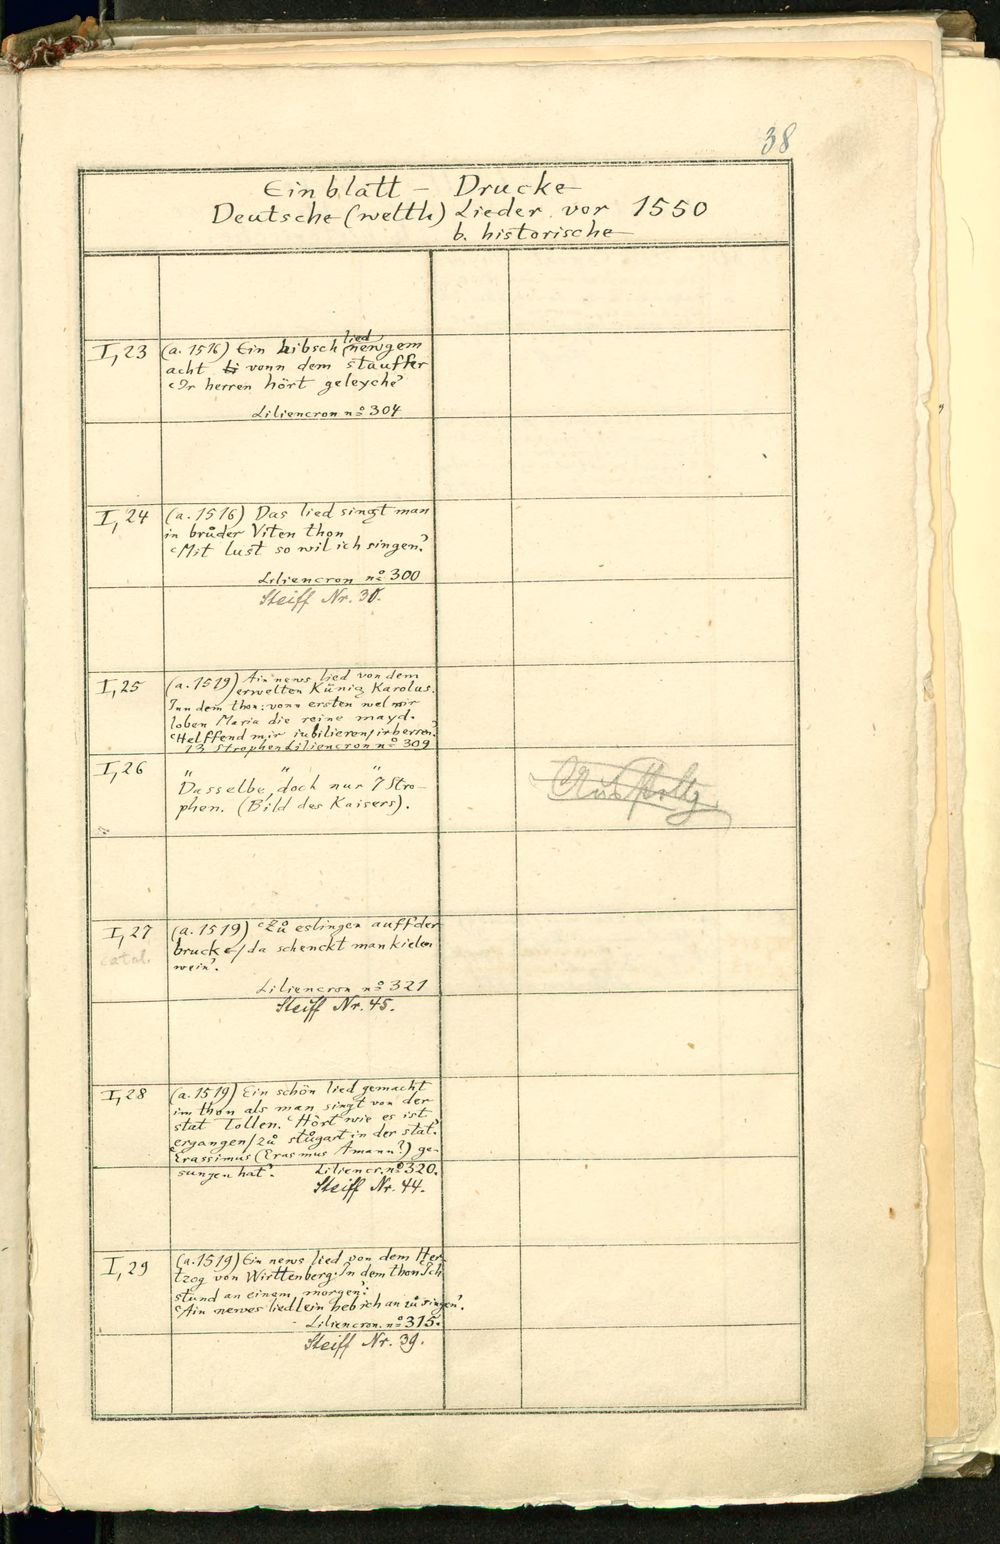 38
Einblatt - Drucke
Deutsche (weltl.) Lieder vor 1550
b. historische
I,23
(a. 1516) Ein hibsch lied newgem
acht vonn dem stauffer
‹Ir herren hört geleyche›
Liliencron no 304
I,24
(a. 1516) Das lied singt man
in brůder Viten thon
‹Mit lust so wil ich singen.›
Liliencron no 300
Steiff Nr. 30.
I,25
(a. 1519) Ain news lied von dem
erwelten Künig Karolus.
Inn dem thon: vonn ersten wel wir
loben Maria die reine mayd.
‹Helffend mir iubilieren / ir herren›
13 Strophen Liliencron no 309
I,26
" " "
Dasselbe, doch nur 7 Stro-
phen. (Bild des Kaisers).
I,27
catal.
(a. 1519) ‹Zů eslingen auff der
bruck / da schenckt man kielen
wein›.
Liliencron no 321
Steiff Nr. 45.
I,28
(a. 1519) Ein schön lied gemacht
im thon als man singt von der
stat Tollen. ‹Hört wie es ist
ergangen / zů stůgart in der stat.›
‹Erassimus (Erasmus Amann?) ge-
sungen hat›. Liliencr. no 320.
Steiff Nr. 44.
I,29
(a. 1519) Ein news lied von dem Her-
tzog von Wirttenberg: In dem thon Ich
stund an einem morgen›:
‹Ain newes liedlein heb ich an zů singen›.
Liliencron. no 315.
Steiff Nr. 39.